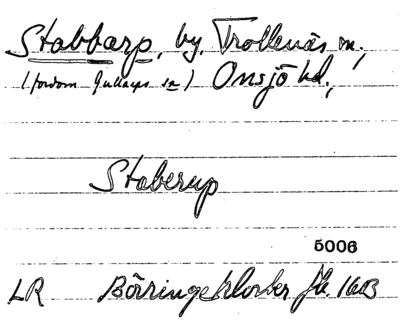 Stabbarp, by, Trollenäs sn,
(fordom Gullarps sn) Onsjö hd,
Staberup
5006
LR Börringekloster jb. 1603